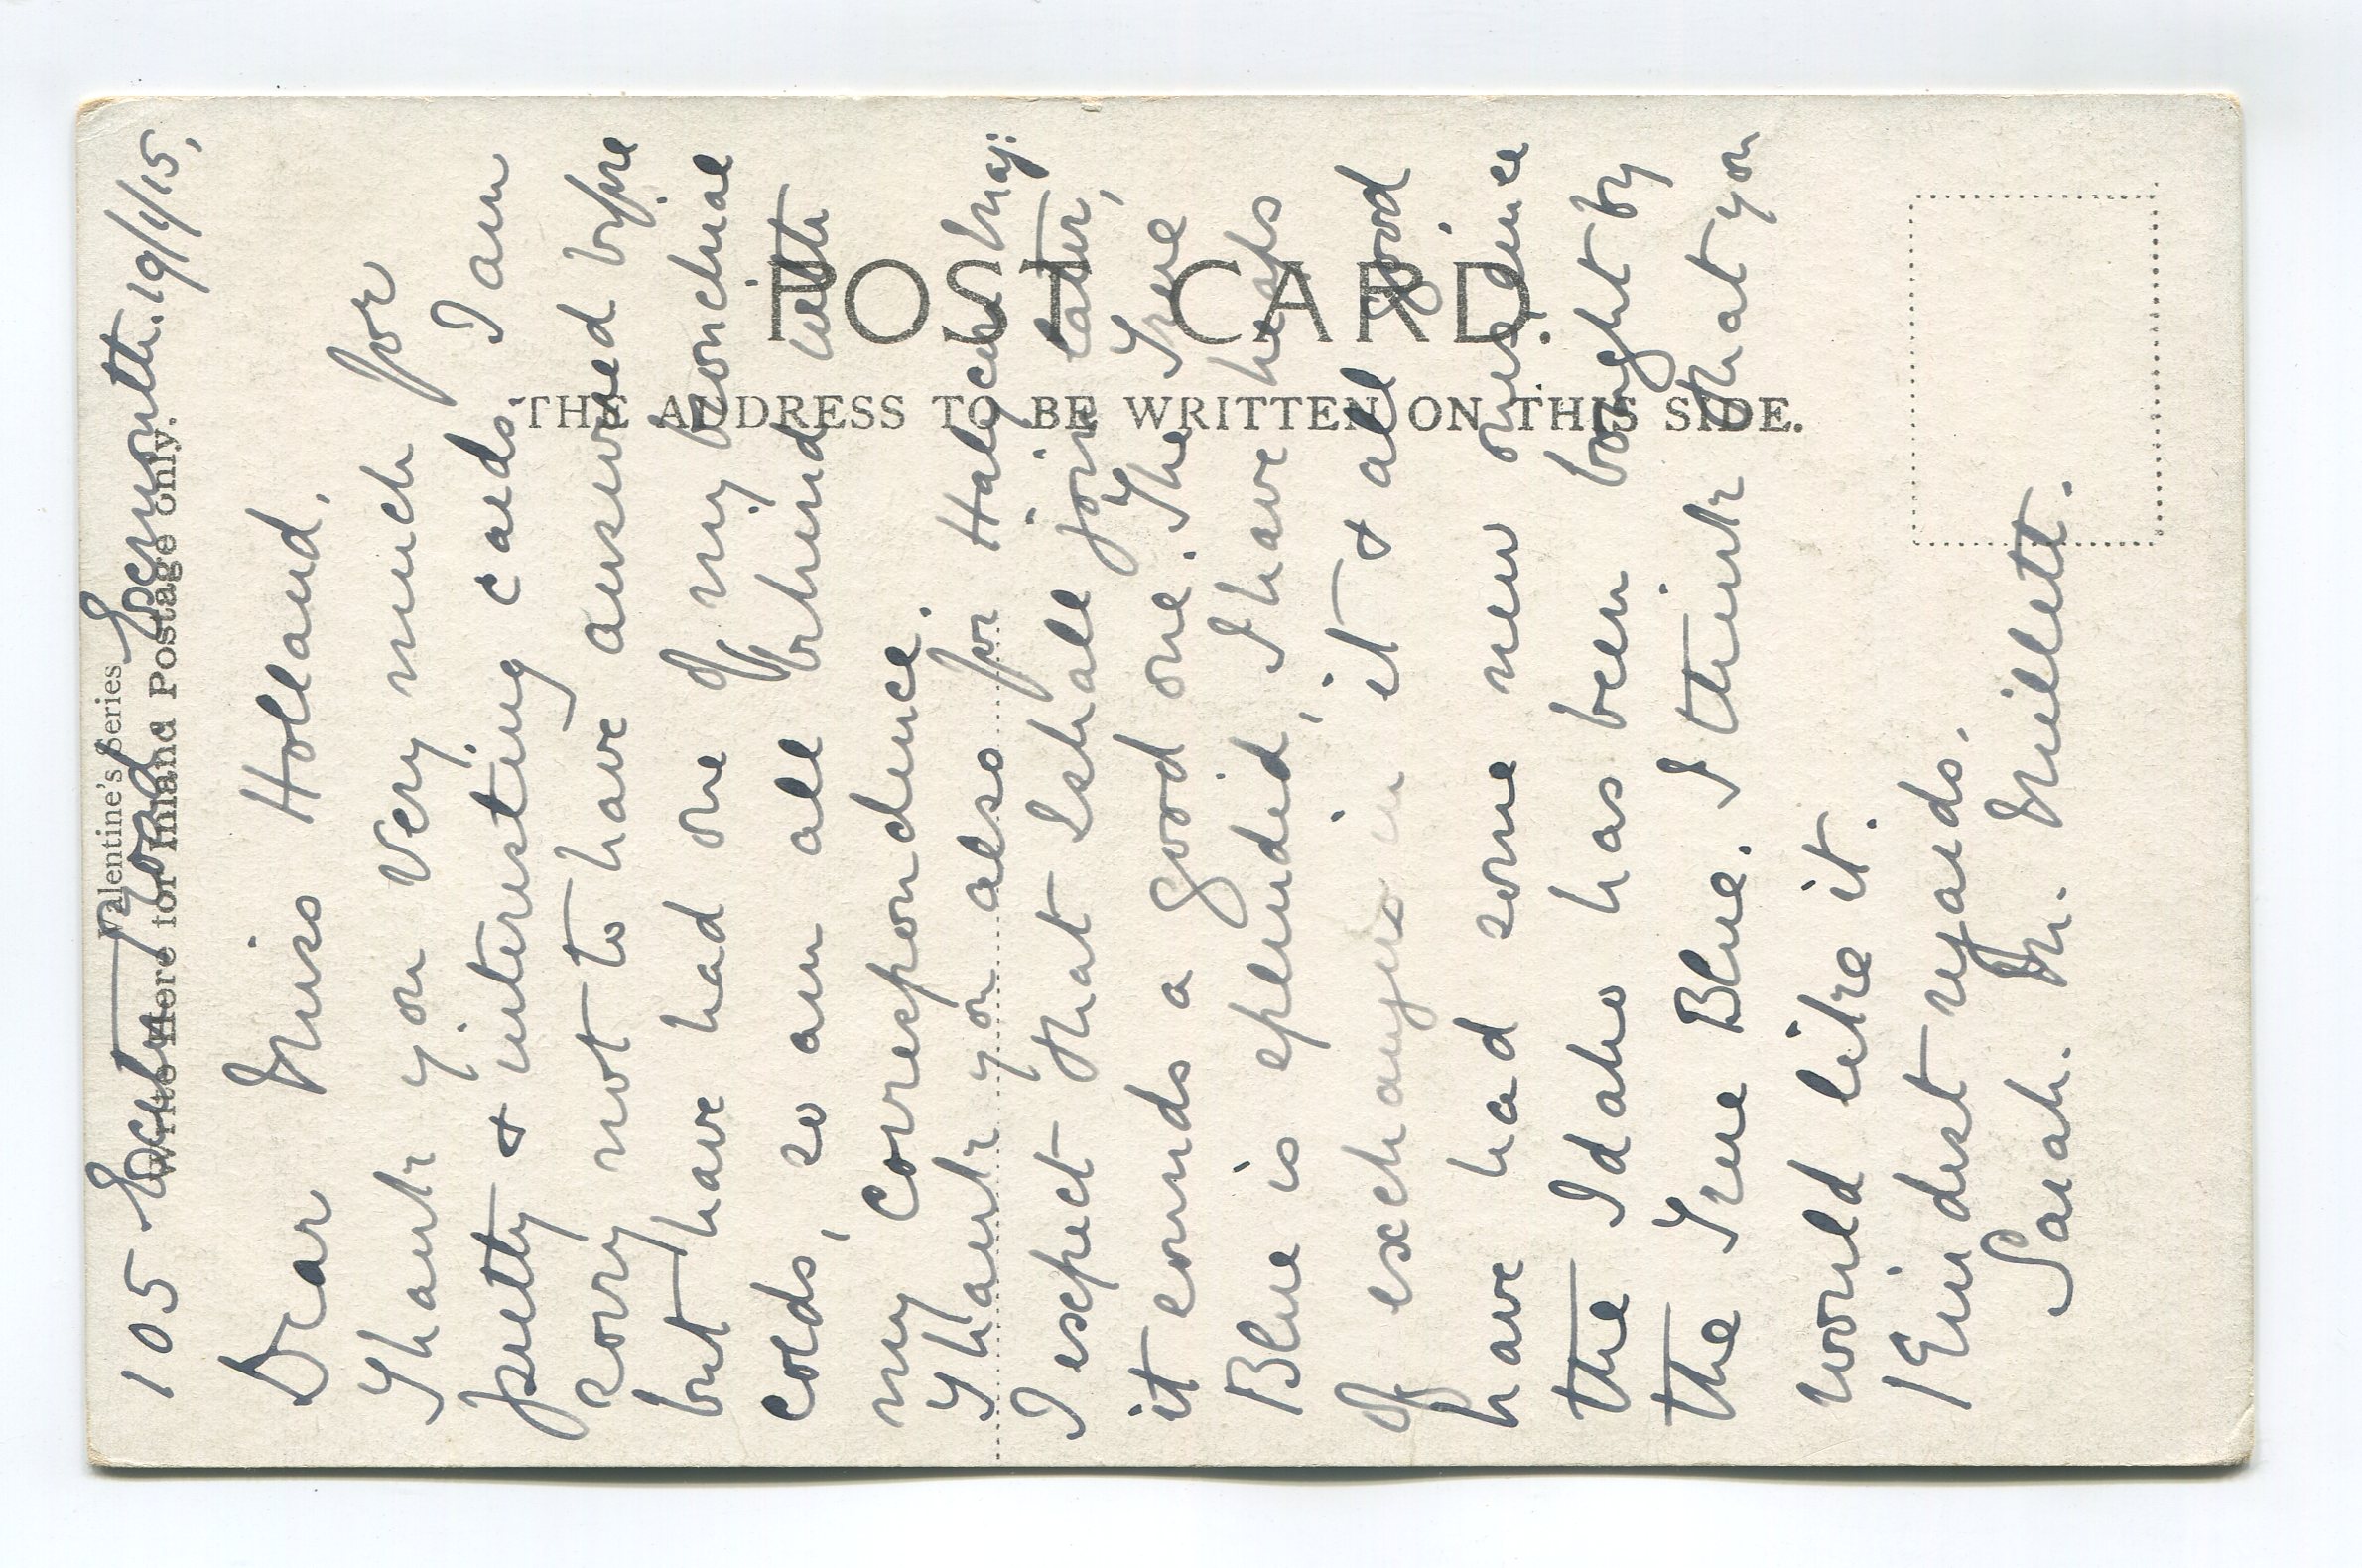 Valentine's Series
Write Here for Inland Postage only.
POST CARD.
THE ADDRESS TO BE WRITTEN ON THIS SIDE.
105 Road 19/4/15,
Dear Miss Holland,
Thank you very much for
pretty & interesting cards. I am
sorry not to have answered before
but have had one of my bronchial
colds, so am all behind with
my correspondence.
Thank you also for
I expect that I shall join later,
it sounds a good one. The True
Blue is splendid, I have heaps
of exchanges in it & all good
have had some new ones since
the Idaho has been bought by
the True Blue. I think that you
would like it.
Kindest regards.
Sarah. M. Millett.